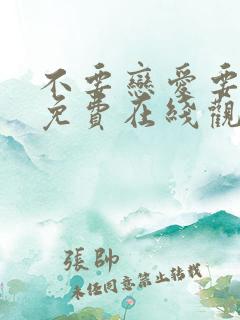 不要戀愛要
免費在綫觀
張帥
未經同意禁止轉載